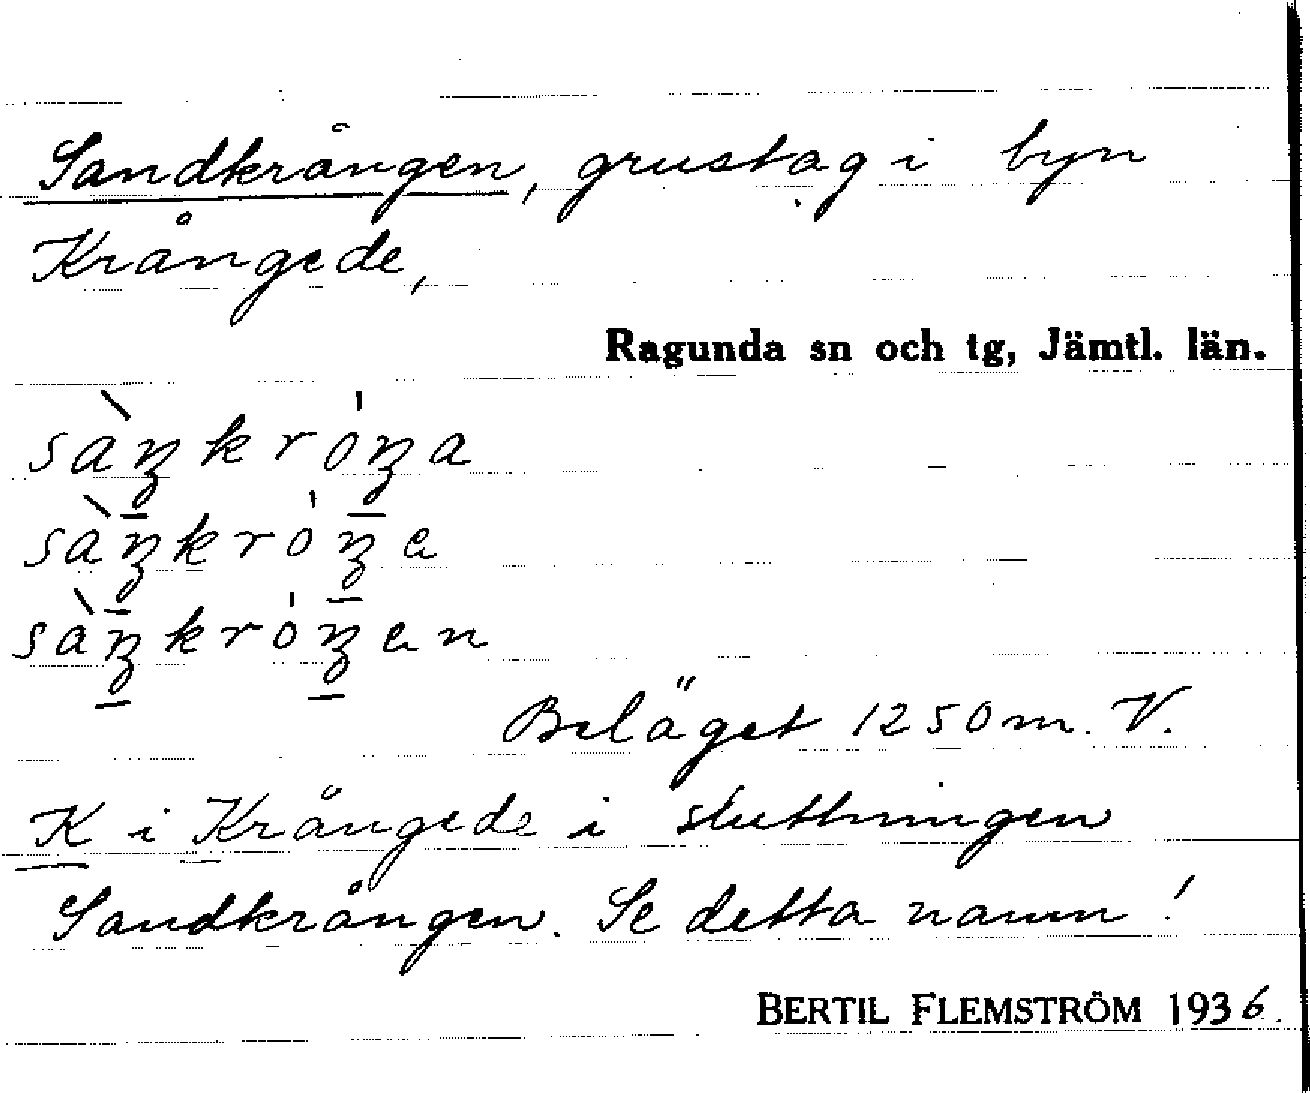 Sandkrången, grustag i byn
Krångede,
Ragunda sn och tg, Jämtl. län.
sàŋkróŋa
sàŋkróŋe
sàŋkróŋen
Beläget 1250 m. V.
K i Krångede i sluttningen
Sandkrången. Se detta namn!
BERTIL FLEMSTRÖM 1936.